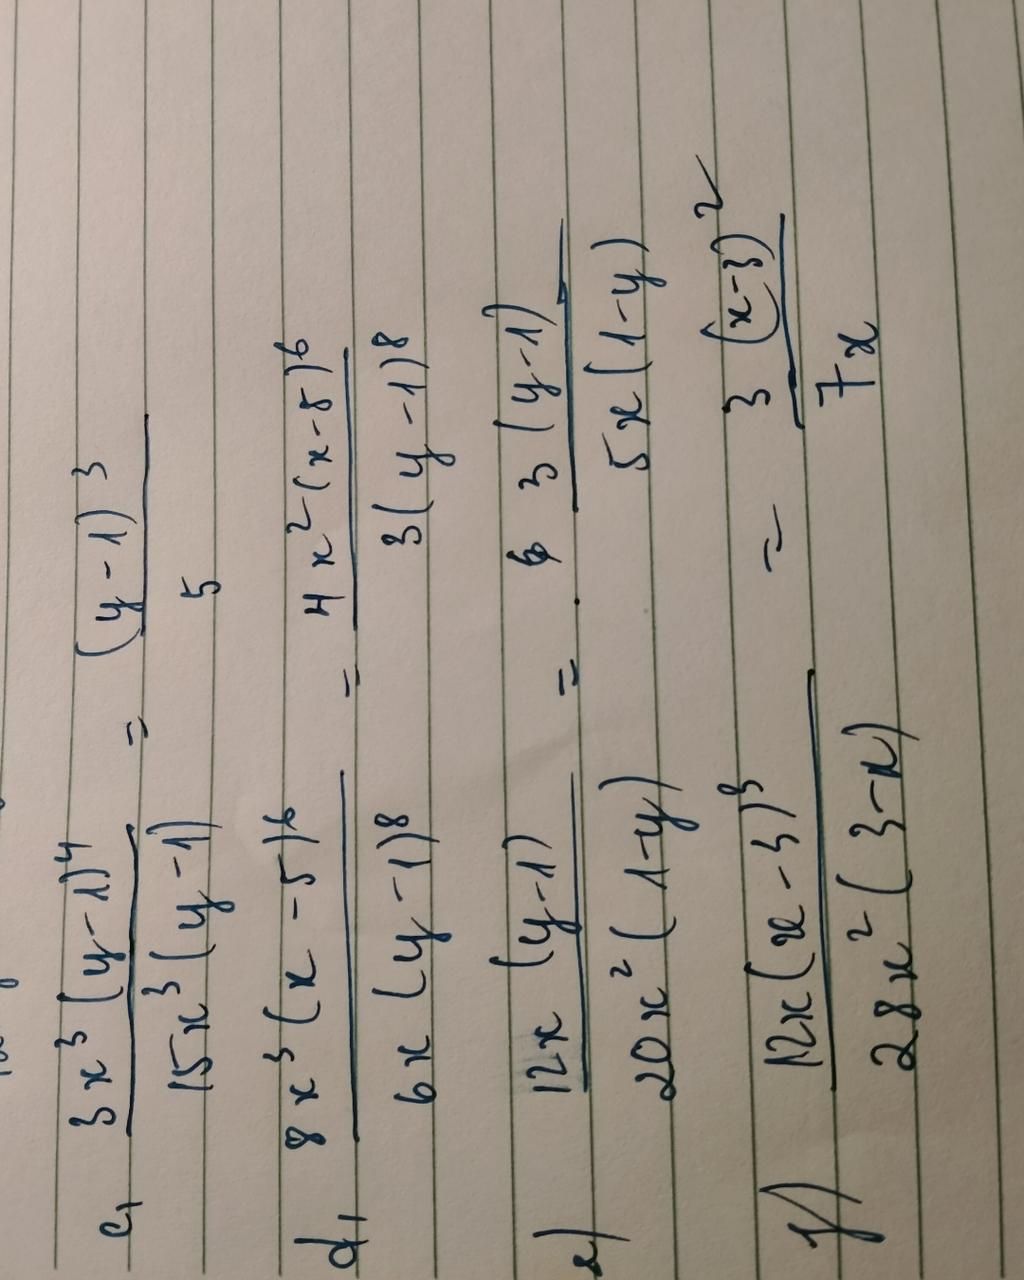 c, 3x³(y-1)⁴ / 15x³(y-1) = (y-1)³ / 5
d, 8x³(x-5)⁶ / 6x(y-1)⁸ = 4x²(x-5)⁶ / 3(y-1)⁸
e) 12x(y-1) / 20x²(1-y) = 3(y-1) / 5x(1-y)
f) 12x(x-3)³ / 28x²(3-x) = 3(x-3)² / 7x